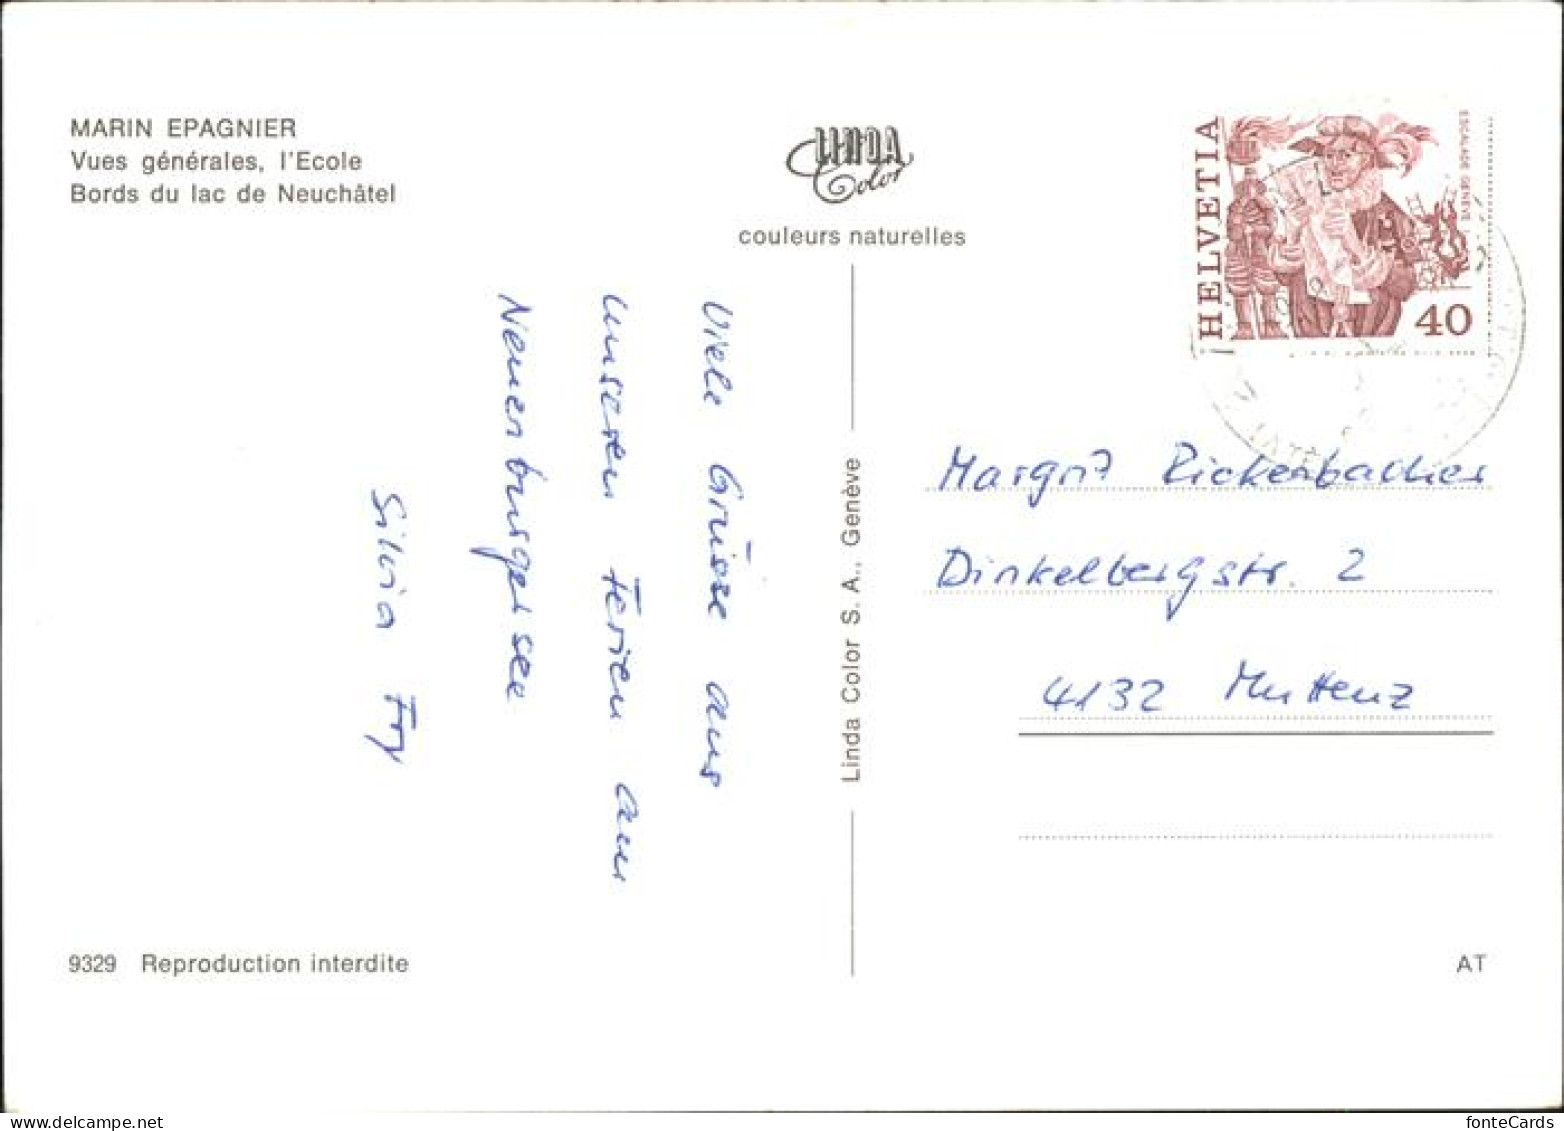 MARIN EPAGNIER
Vues générales, l'Ecole
Bords du lac de Neuchâtel
LINDA
Color
couleurs naturelles
HELVETIA
ESCALADE GENÈVE
40
Viele Grüsse aus
unseren Ferien am
Neuenburgersee
Silvia Fry
Linda Color S. A., Genève
Margrit Rickenbacher
Dinkelbergstr. 2
4132 Muttenz
9329 Reproduction interdite
AT
fonteCards